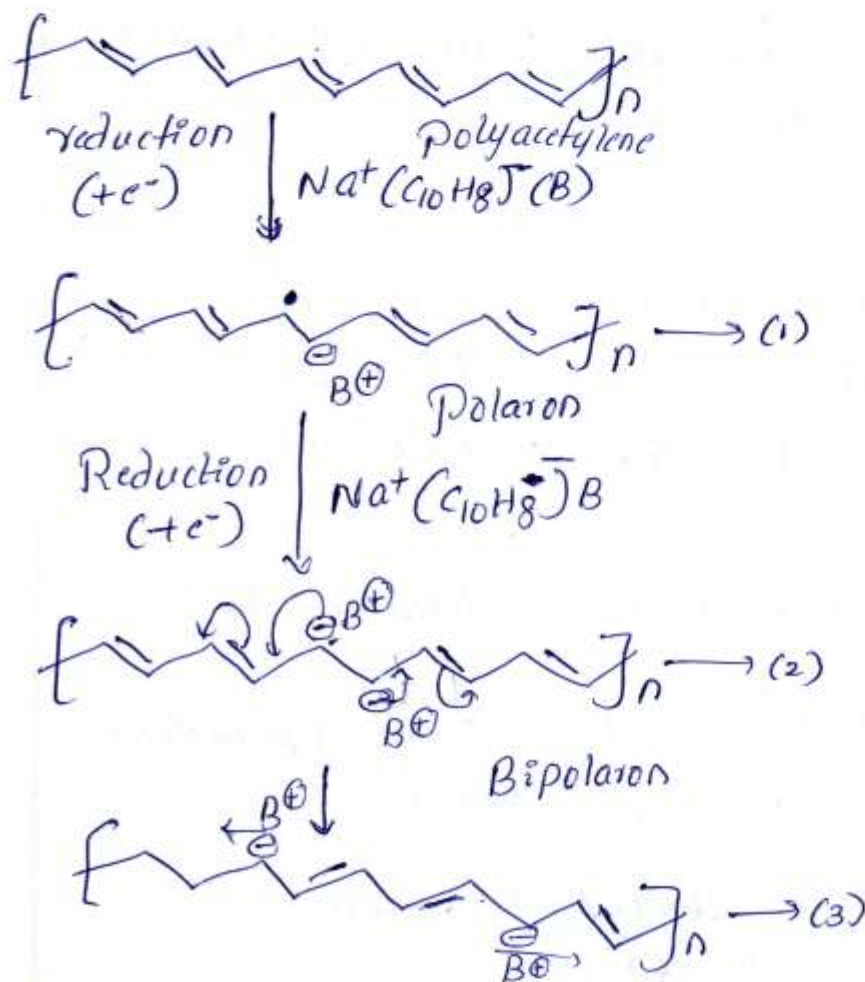 n
reduction
(+e⁻)
polyacetylene
Na⁺(C10H8)⁻(B)
n → (1)
⊖
B⊕
Polaron
Reduction
(+e⁻)
Na⁺(C10H8•⁻)B
⊖B⊕
n → (2)
⊖
B⊕
Bipolaron
B⊕
⊖
n → (3)
⊖
B⊕